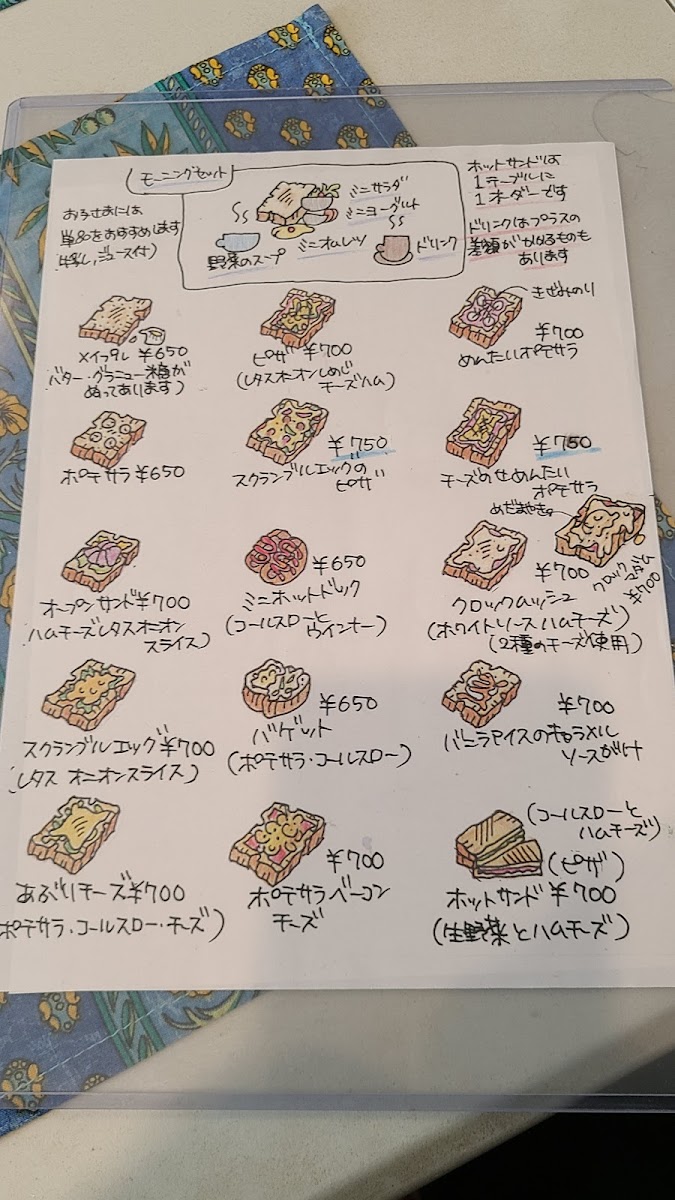 モーニングセット
おこさまには
単品をおすすめします
(牛乳、ジュース付)
ミニサラダ
ミニヨーグルト
野菜のスープ
ミニオムレツ
ドリンク
ホットサンドは
1テーブルに
1オーダーです
ドリンクはプラスの
差額がかかるものも
あります
メイプル ¥650
バター・グラニュー糖が
ぬってあります)
ピザ ¥700
(レタスオニオンしめじ
チーズハム)
きざみのり
¥700
めんたいポテサラ
ポテサラ ¥650
¥750
スクランブルエッグの
ピザ
¥750
チーズのせめんたい
ポテサラ
オープンサンド¥700
ハムチーズレタスオニオン
スライス)
¥650
ミニホットドック
(コールスローと
ウインナー)
めだまやき
¥700
クロックムッシュ
(ホワイトソースハムチーズ)
(2種のチーズ使用)
クロックマダム
¥700
スクランブルエッグ¥700
(レタス オニオンスライス)
¥650
バゲット
(ポテサラ・コールスロー)
¥700
バニラアイスのキャラメル
ソースがけ
あぶりチーズ¥700
ポテサラ・コールスロー・チーズ)
¥700
ポテサラベーコン
チーズ
(コールスローと
ハムチーズ)
(ピザ)
ホットサンド ¥700
(生野菜とハムチーズ)